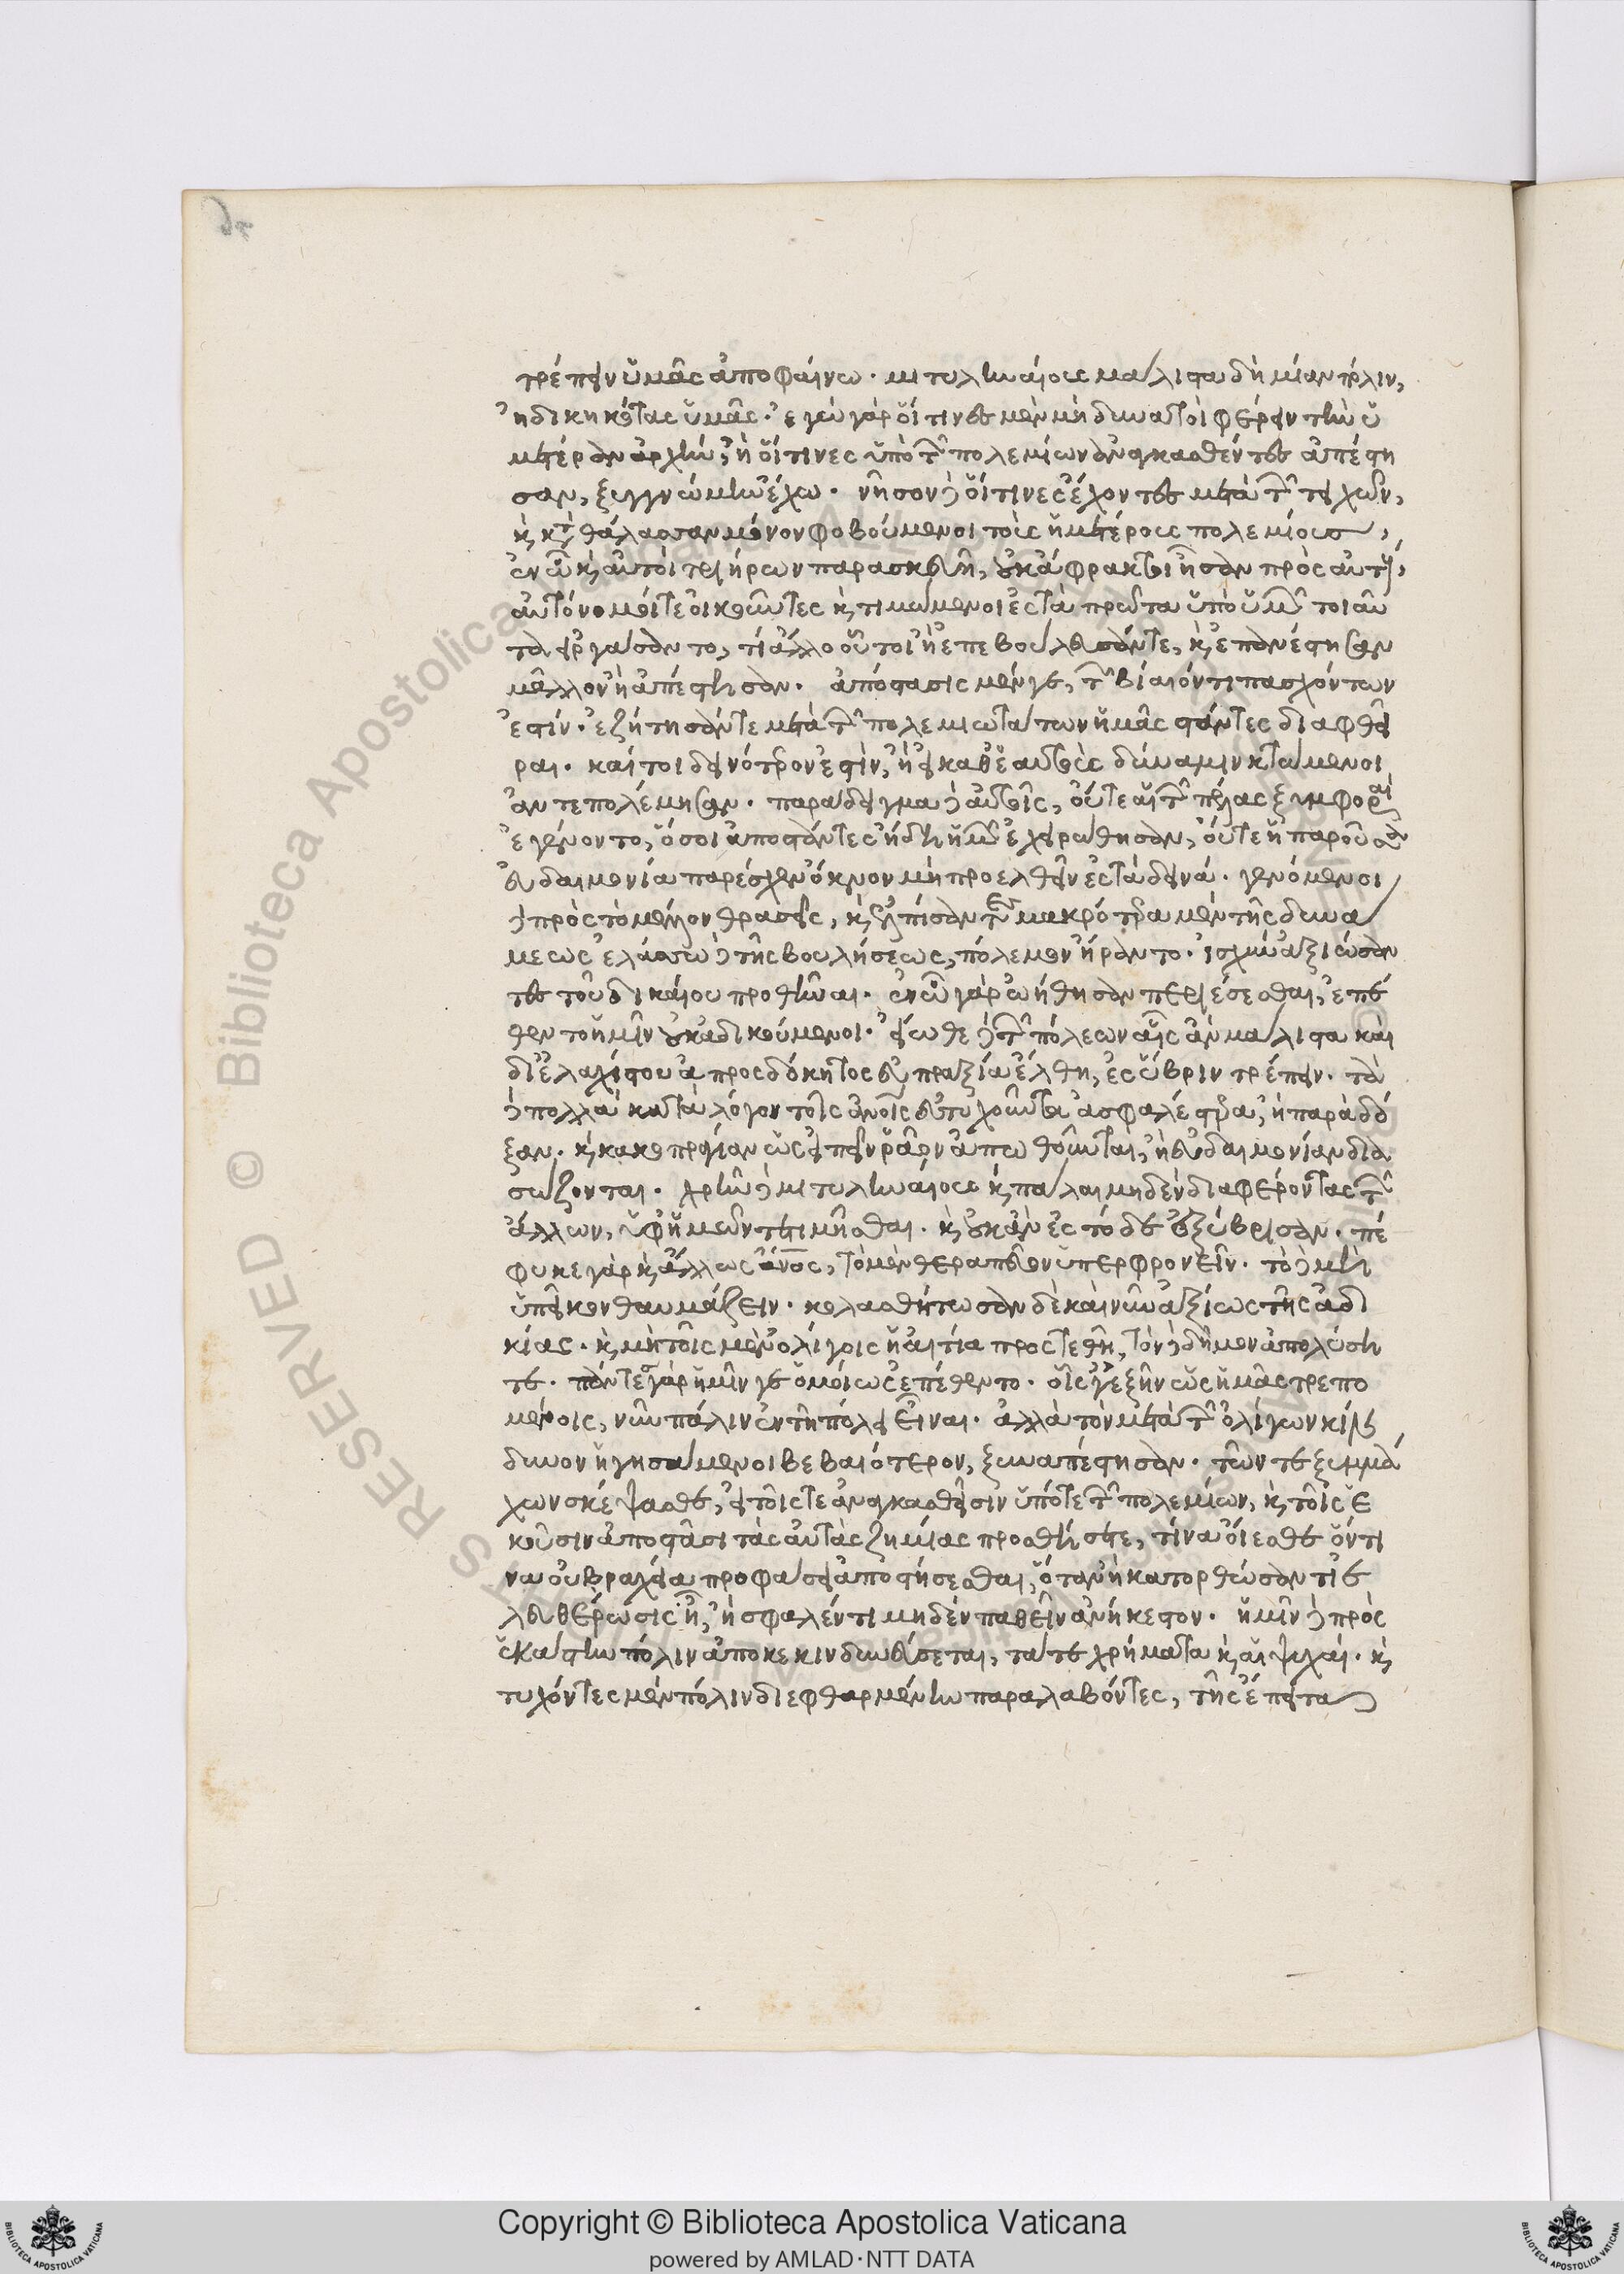 τρέπειν ὑμᾶς ἀποφαίνω. μιτυληναίους μάλιστα δὴ μίαν πόλιν,
ἠδικηκότας ὑμᾶς. ἐγὼ γὰρ οἵτινες μὲν μὴ δυνατοὶ φέρειν τὴν ὑ
μετέραν ἀρχὴν, ἢ οἵτινες ὑπὸ τῶν πολεμίων ἀναγκασθέντες ἀπέστη
σαν, ξυγγνώμην ἔχω. νῆσον δὲ οἵτινες ἔχοντες μετὰ τῶν τειχῶν,
κ κατὰ θάλασσαν μόνον φοβούμενοι τοὺς ἡμετέρους πολεμίους,
ἐν ὧ κ αὐτοὶ τριήρων παρασκευῆ, οὐκ ἄφρακτοι ἦσαν πρὸς αὐτούς,
αὐτόνομοί τε οἰκοῦντες κ τιμώμενοι ἐς τὰ πρῶτα ὑπὸ ὑμῶν τοιαῦ
τα εἰργάσαντο, τί ἄλλο οὗτοι ἢ ἐπεβούλευσάν τε, κ ἐπανέστησαν
μᾶλλον ἢ ἀπέστησαν. ἀπόστασις μέν γε, τῶν βίαιόν τι πασχόντων
ἐστίν. ἐζήτησάν τε μετὰ τῶν πολεμιωτάτων ἡμᾶς στάντες διαφθεῖ
ραι. καίτοι δεινότερον ἐστὶν, ἢ εἰ καθ' ἑαυτοὺς δύναμιν κτώμενοι
ἀντεπολέμησαν. παράδειγμα δὲ αὐτοῖς, οὔτε αἱ τῶν πέλας ξυμφοραὶ
ἐγένοντο, ὅσοι ἀποστάντες ἤδη ἡμῶν ἐχειρώθησαν, οὔτε ἡ παροῦσα
εὐδαιμονία παρέσχεν ὄκνον μὴ προελθεῖν ἐς τὰ δεινά. γενόμενοι
δὲ πρὸς τὸ μέλλον θρασεῖς, κ ἐλπίσαντες μακρότερα μὲν τῆς δυνά
μεως ἐλάσσω δὲ τῆς βουλήσεως, πόλεμον ἤραντο. ἰσχὺν ἀξιώσαν
τες τοῦ δικαίου προθεῖναι. ἐν ὧ γὰρ ὠήθησαν περιέσεσθαι, ἐπέ
θεντο ἡμῖν οὐκ ἀδικούμενοι. εἴωθε δὲ τῶν πόλεων αἷς ἂν μάλιστα καὶ
δι' ἐλαχίστου ἀπροσδόκητος εὐπραξία ἔλθη, ἐς ὕβριν τρέπειν. τὰ
δὲ πολλὰ κατὰ λόγον τοῖς ἀνοις εὐτυχοῦντα ἀσφαλέστερα, ἢ παρὰ δό
ξαν. κ κακοπραγίαν ὡς εἰπεῖν ῥᾶον ἀπωθοῦνται, ἢ εὐδαιμονίαν δια
σώζονται. χρῆν δὲ μιτυληναίους κ πάλαι μηδὲν διαφέροντας τῶν
ἄλλων, ὑφ' ἡμῶν τετιμῆσθαι. κ οὐκ ἂν ἐς τόδε ἐξύβρισαν. πέ
φυκε γὰρ κ ἄλλως ἄνος, τὸ μὲν θεραπεῦον ὑπερφρονεῖν. τὸ δὲ μὴ
ὑπεῖκον θαυμάζειν. κολασθήτωσαν δὲ καὶ νῦν ἀξίως τῆς ἀδι
κίας. κ μὴ τοῖς μὲν ὀλίγοις ἡ αἰτία προστεθῆ, τὸν δὲ δῆμον ἀπολύση
τε. πάντες γὰρ ἡμῖν γε ὁμοίως ἐπέθεντο. οἷς γ' ἐξῆν ὡς ἡμᾶς τρεπο
μένοις, νῦν πάλιν ἐν τῆ πόλει εἶναι. ἀλλὰ τὸν μετὰ τῶν ὀλίγων κίν
δυνον ἡγησάμενοι βεβαιότερον, ξυναπέστησαν. τῶν τε ξυμμά
χων σκέψασθε, εἰ τοῖς τε ἀναγκασθεῖσιν ὑπό τε τῶν πολεμίων, κ τοῖς ἑ
κοῦσιν ἀποστᾶσι τὰς αὐτὰς ζημίας προσθήσετε, τίνα οἴεσθε ὅντι
να οὐ βραχεία προφάσει ἀποστήσεσθαι, ὅταν ἢ κατορθώσαντι ἐ
λευθέρωσις ἦ, ἢ σφαλέντι μηδὲν παθεῖν ἀνήκεστον. ἡμῖν δὲ πρὸς
ἑκάστην πόλιν ἀποκεκινδυνεύσεται, τά τε χρήματα κ αἱ ψυχαί. κ
τυχόντες μὲν πόλιν διεφθαρμένην παραλαβόντες, τῆς ἔπειτα